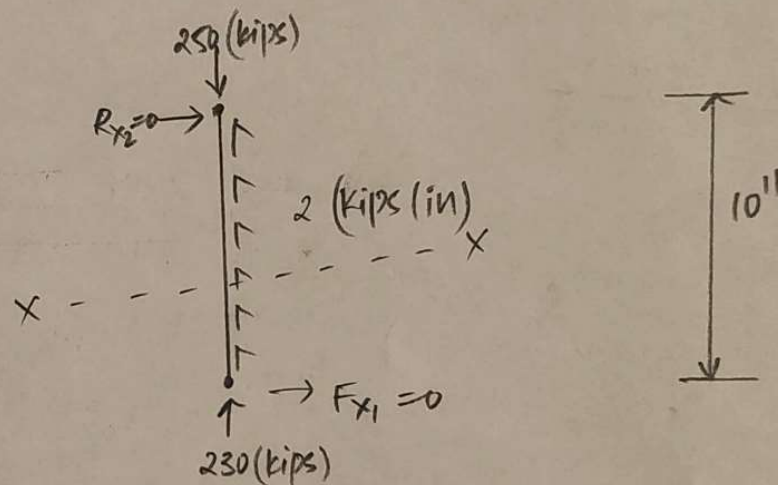 250 (kips)
Rx2=0
2 (kips/in)
10"
X
X
Fx1 =0
230 (kips)